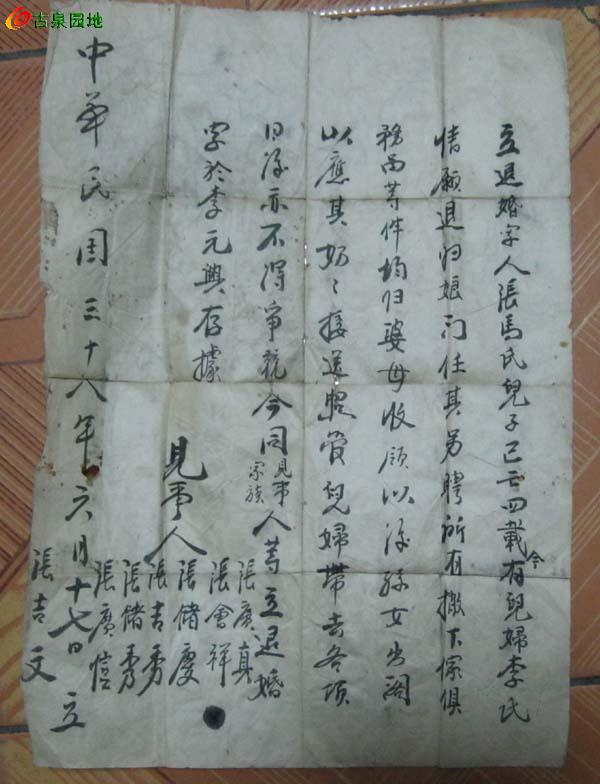 古泉园地
立退婚字人張馬氏兒子已亡四載今有兒婦李氏
情愿退归娘门任其另聘所有撇下傢俱
物而等件均归婆母收顾以后孫女出阁
以應其奶〻接送照管兒婦帶去各項
日後亦不得争競今同見事宗族人等立退婚
字於李元興存據
見事人
張廣真
張會祥
張儲慶
張吉秀
張儲秀
張廣信
張吉文
中華民国三十八年六月十七日立